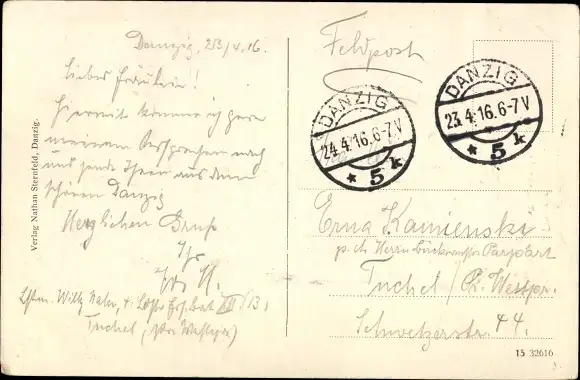 Danzig, 23/4.16.
Liebes Fräulein!
Hiermit komme ich gern
meinem Versprechen nach
und sende Ihnen aus dem
schönen Danzig
Herzlichen Gruß
Ihr
Tuchel,
Verlag Nathan Sternfeld, Danzig.
Feldpost
DANZIG
24.4.16.6-7V
* 5 k
DANZIG
23.4.16.6-7V
* 5 k
Erna Kamienski
p. Adr. Herrn
Tuchel / Westpr.
Schwetzerstr. 44.
15 32616